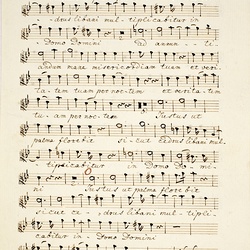 -drus libani mul-tiplicabitur in
Domo Domini ad annun-ti-
andum mane misericordiam tuam et veri-
tatem tuam per noctem et veritatem
tuam per noctem Justus ut
palma florebit sicut cedrus libani mul-
tiplicabitur in Domo Domi-
ni Justus ut palma florebit
sicut ce-drus libani multipli-
cabitur in Domo Domini